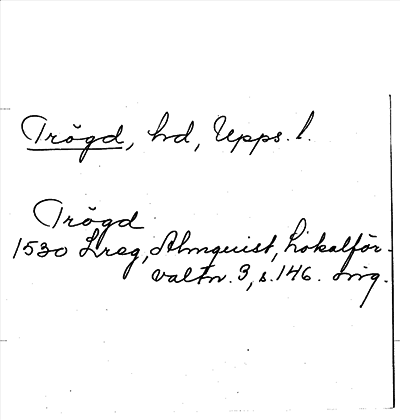 Trögd, hd, Upps. l.
Trögd
1530 Lreg, Almquist, Lokalför-
valtn. 3, s. 146. orig.